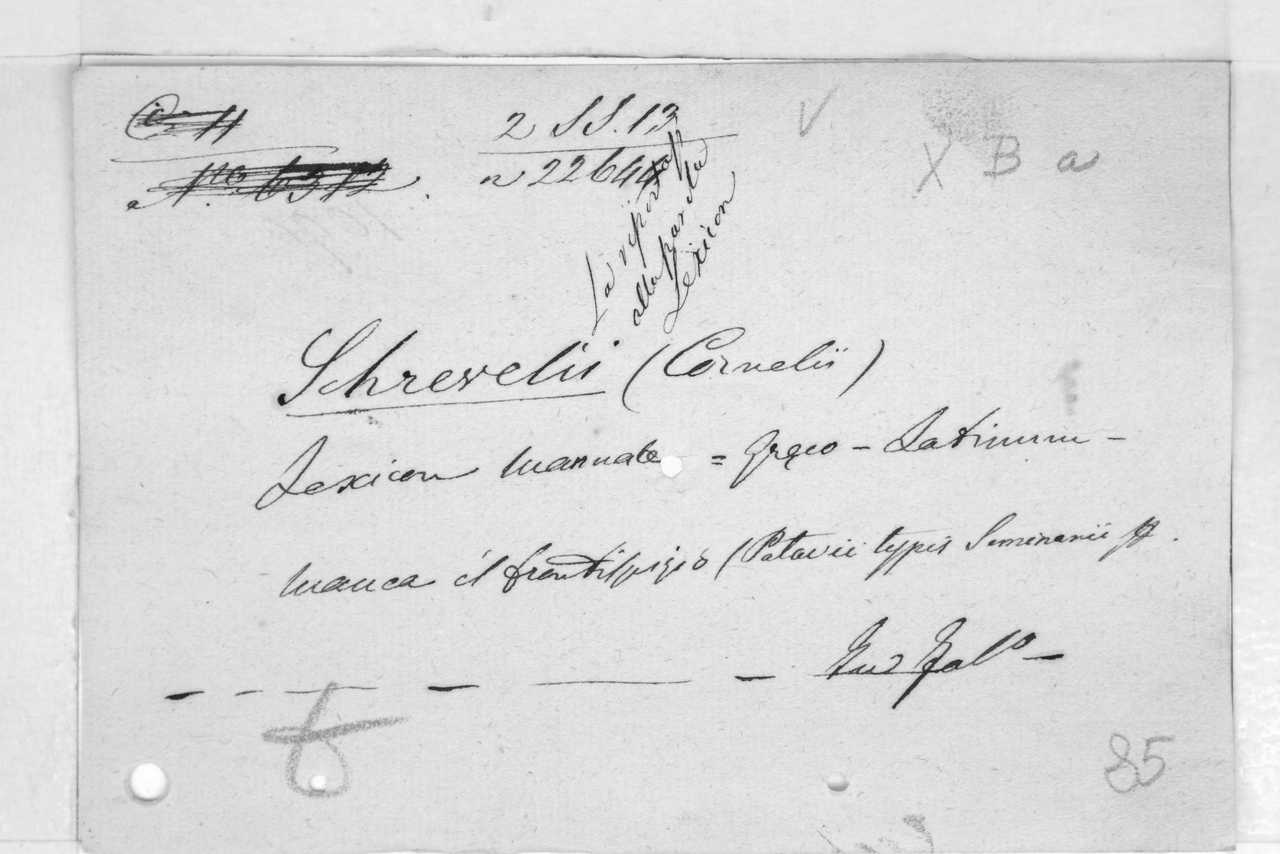 2 SS. 13
n 22644
V
X B a
La riportap
alla parola
Lexicon
Schrevelii (Cornelii)
Lexicon manuale = Greco - Latinum -
manca il frontispizio (Patavii typis Seminarii
In Fol.o
85